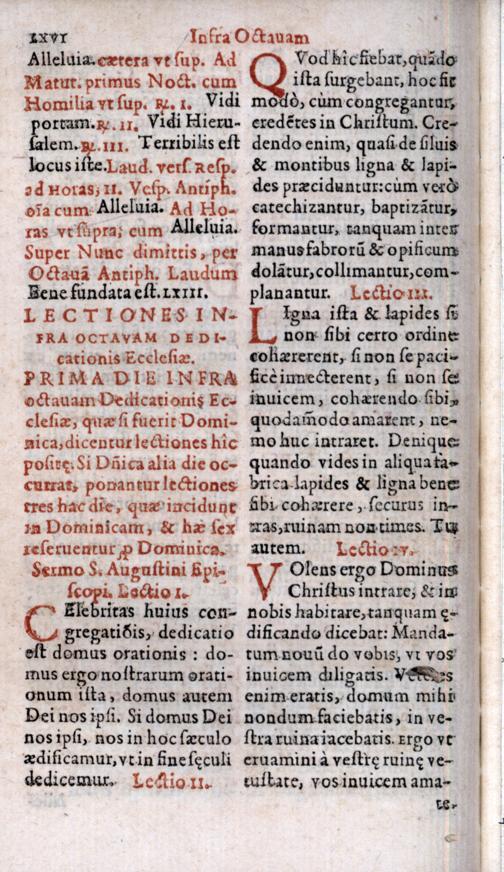 LXVI Infra Octauam
Alleluia. cætera vt sup. Ad
Matut. primus Noct. cum
Homilia vt sup. ℞. I. Vidi
portam. ℞. II. Vidi Hieru-
salem. ℞. III. Terribilis est
locus iste. Laud. vers. Resp.
ad Horas, II. Vesp. Antiph.
oīa cum Alleluia. Ad Ho-
ras vt supra, cum Alleluia.
Super Nunc dimittis, per
Octauā Antiph. Laudum
Bene fundata est. LXIII.
LECTIONES IN-
FRA OCTAVAM DEDI-
cationis Ecclesiæ.
PRIMA DIE INFRA
octauam Dedicationis Ec-
clesiæ, quæ si fuerit Domi-
nica, dicentur lectiones hîc
positę. Si Dñica alia die oc-
currat, ponantur lectiones
tres hac die, quæ incidunt
in Dominicam, & hæ sex
reseruentur ꝓ Dominica.
Sermo S. Augustini Epi-
scopi. Lectio I.
CElebritas huius con-
gregatiōis, dedicatio
est domus orationis : do-
mus ergo nostrarum orati-
onum ista, domus autem
Dei nos ipsi. Si domus Dei
nos ipsi, nos in hoc sæculo
ædificamur, vt in fine sęculi
dedicemur. Lectio II.
QVod hîc fiebat, quādo
ista surgebant, hoc fit
modò, cùm congregantur,
credētes in Christum. Cre-
dendo enim, quasi de siluis
& montibus ligna & lapi-
des præciduntur: cùm verò
catechizantur, baptizātur,
formantur, tanquam inter
manus fabrorū & opificum
dolātur, collimantur, com-
planantur. Lectio III.
LIgna ista & lapides si
non sibi certo ordine
cohærerent, si non se paci-
ficè innecterent, si non se
inuicem, cohærendo sibi,
quodāmodo amarent, ne-
mo huc intraret. Denique
quando vides in aliqua fa-
brica lapides & ligna bene
sibi cohærere, securus in-
tras, ruinam non times. Tu
autem. Lectio IV.
VOlens ergo Dominus
Christus intrare, & in
nobis habitare, tanquam ę-
dificando dicebat: Manda-
tum nouū do vobis, vt vos
inuicem diligatis. Veteres
enim eratis, domum mihi
nondum faciebatis, in ve-
stra ruina iacebatis. Ergo vt
eruamini à vestrę ruinę ve-
tustate, vos inuicem ama-
te.